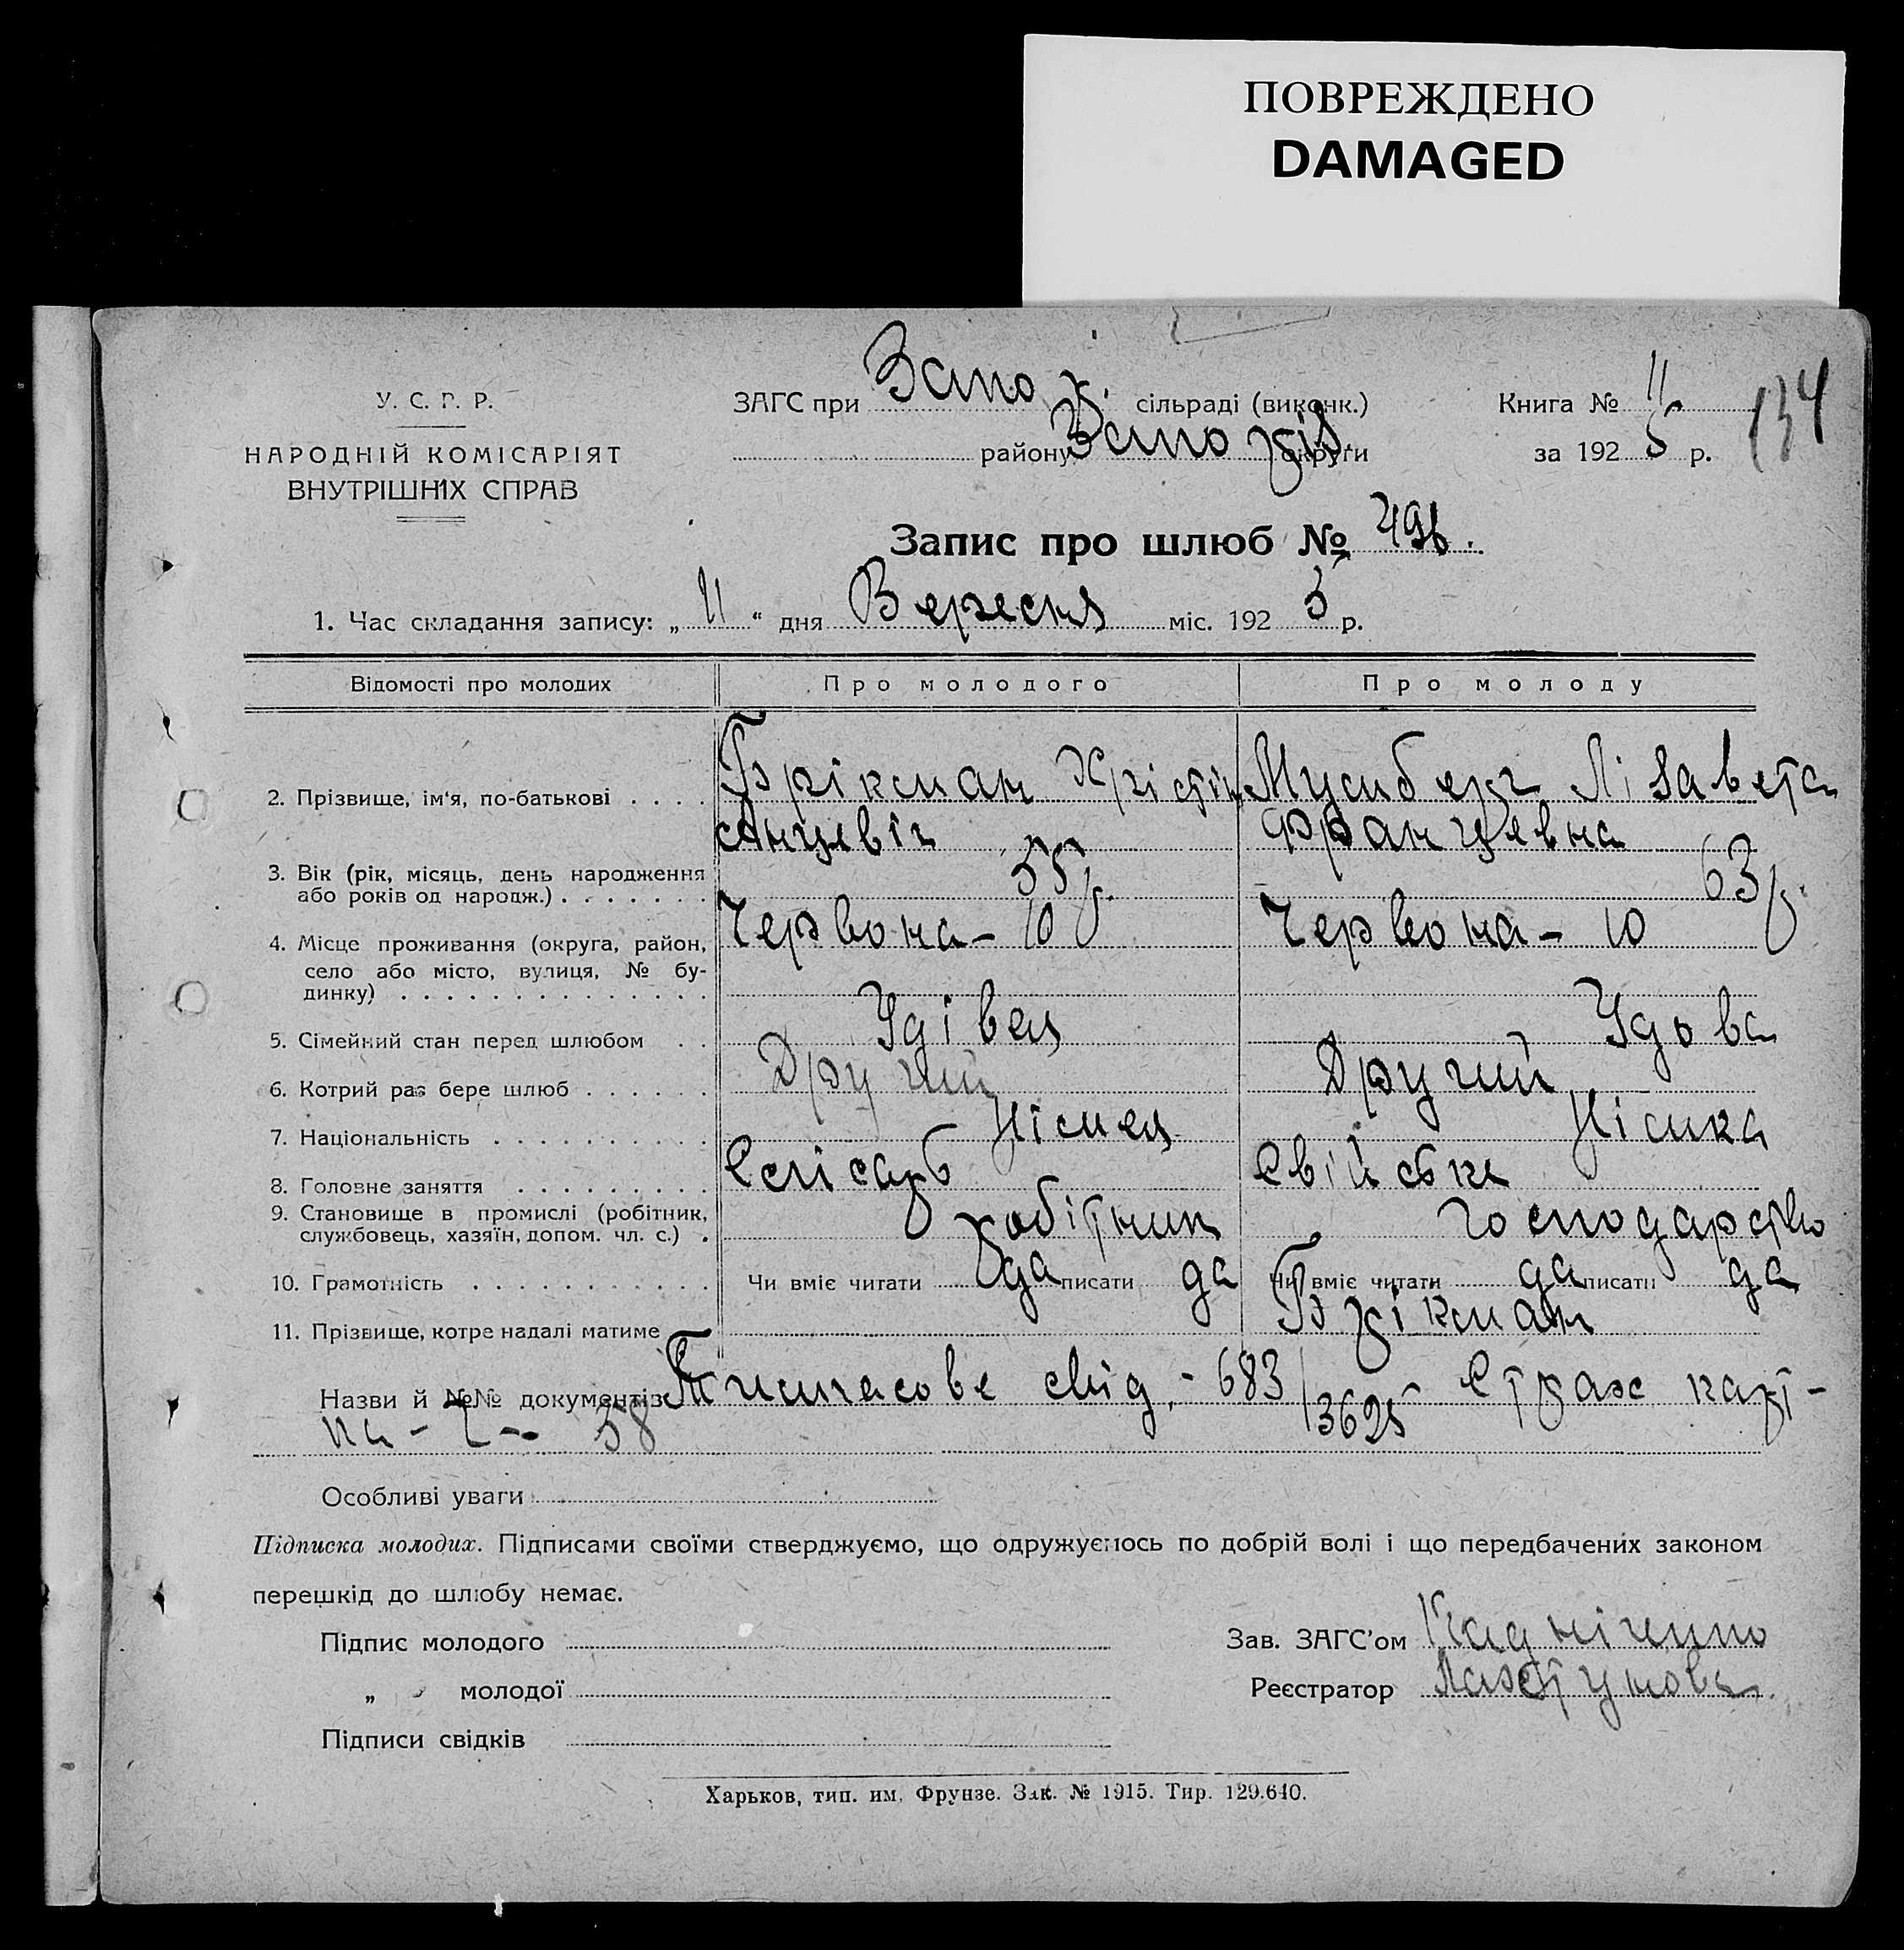 ПОВРЕЖДЕНО
DAMAGED
У. С. Р. Р.
НАРОДНІЙ КОМІСАРІЯТ
ВНУТРІШНІХ СПРАВ
ЗАГС при Запор. сільраді (виконк.)
району Запорізь округи
Книга № 11
за 1925 р.
134
Запис про шлюб № 496.
1. Час складання запису: „11“ дня Вересня міс. 1925 р.
Відомості про молодих Про молодого Про молоду
2. Прізвище, ім‘я, по-батькові . . . . Брікман Хрістіян Лізавета
Францевна
3. Вік (рік, місяць, день народження
або років од народж.) . . . . . . . 55 р. 63 р.
4. Місце проживання (округа, район, Червона – 10 Червона – 10
село або місто, вулиця, № бу-
динку) . . . . . . . . . . . . . .
5. Сімейний стан перед шлюбом . . Удівец Удова
6. Котрий раз бере шлюб . . . . . . Другий Другий
7. Національність . . . . . . . . . . Німец Німка
8. Головне заняття . . . . . . . . . Слісарь Свійське
9. Становище в промислі (робітник,
службовець, хазяїн, допом. чл. с.) . робітник господарство
10. Грамотність . . . . . . . . . . . Чи вміє читати да писати да Чи вміє читати да писати да
11. Прізвище, котре надалі матиме Брікман
Назви й №№ документів Тимчасове свід. - 683/3625 Страх карт-
ка - 58
Особливі уваги
Підписка молодих. Підписами своїми стверджуємо, що одружуємось по добрій волі і що передбачених законом
перешкід до шлюбу немає.
Підпис молодого
„ молодої
Підписи свідків
Зав. ЗАГС’ом
Реєстратор
Харьков, тип. им. Фрунзе. Зак. № 1915. Тир. 129.640.